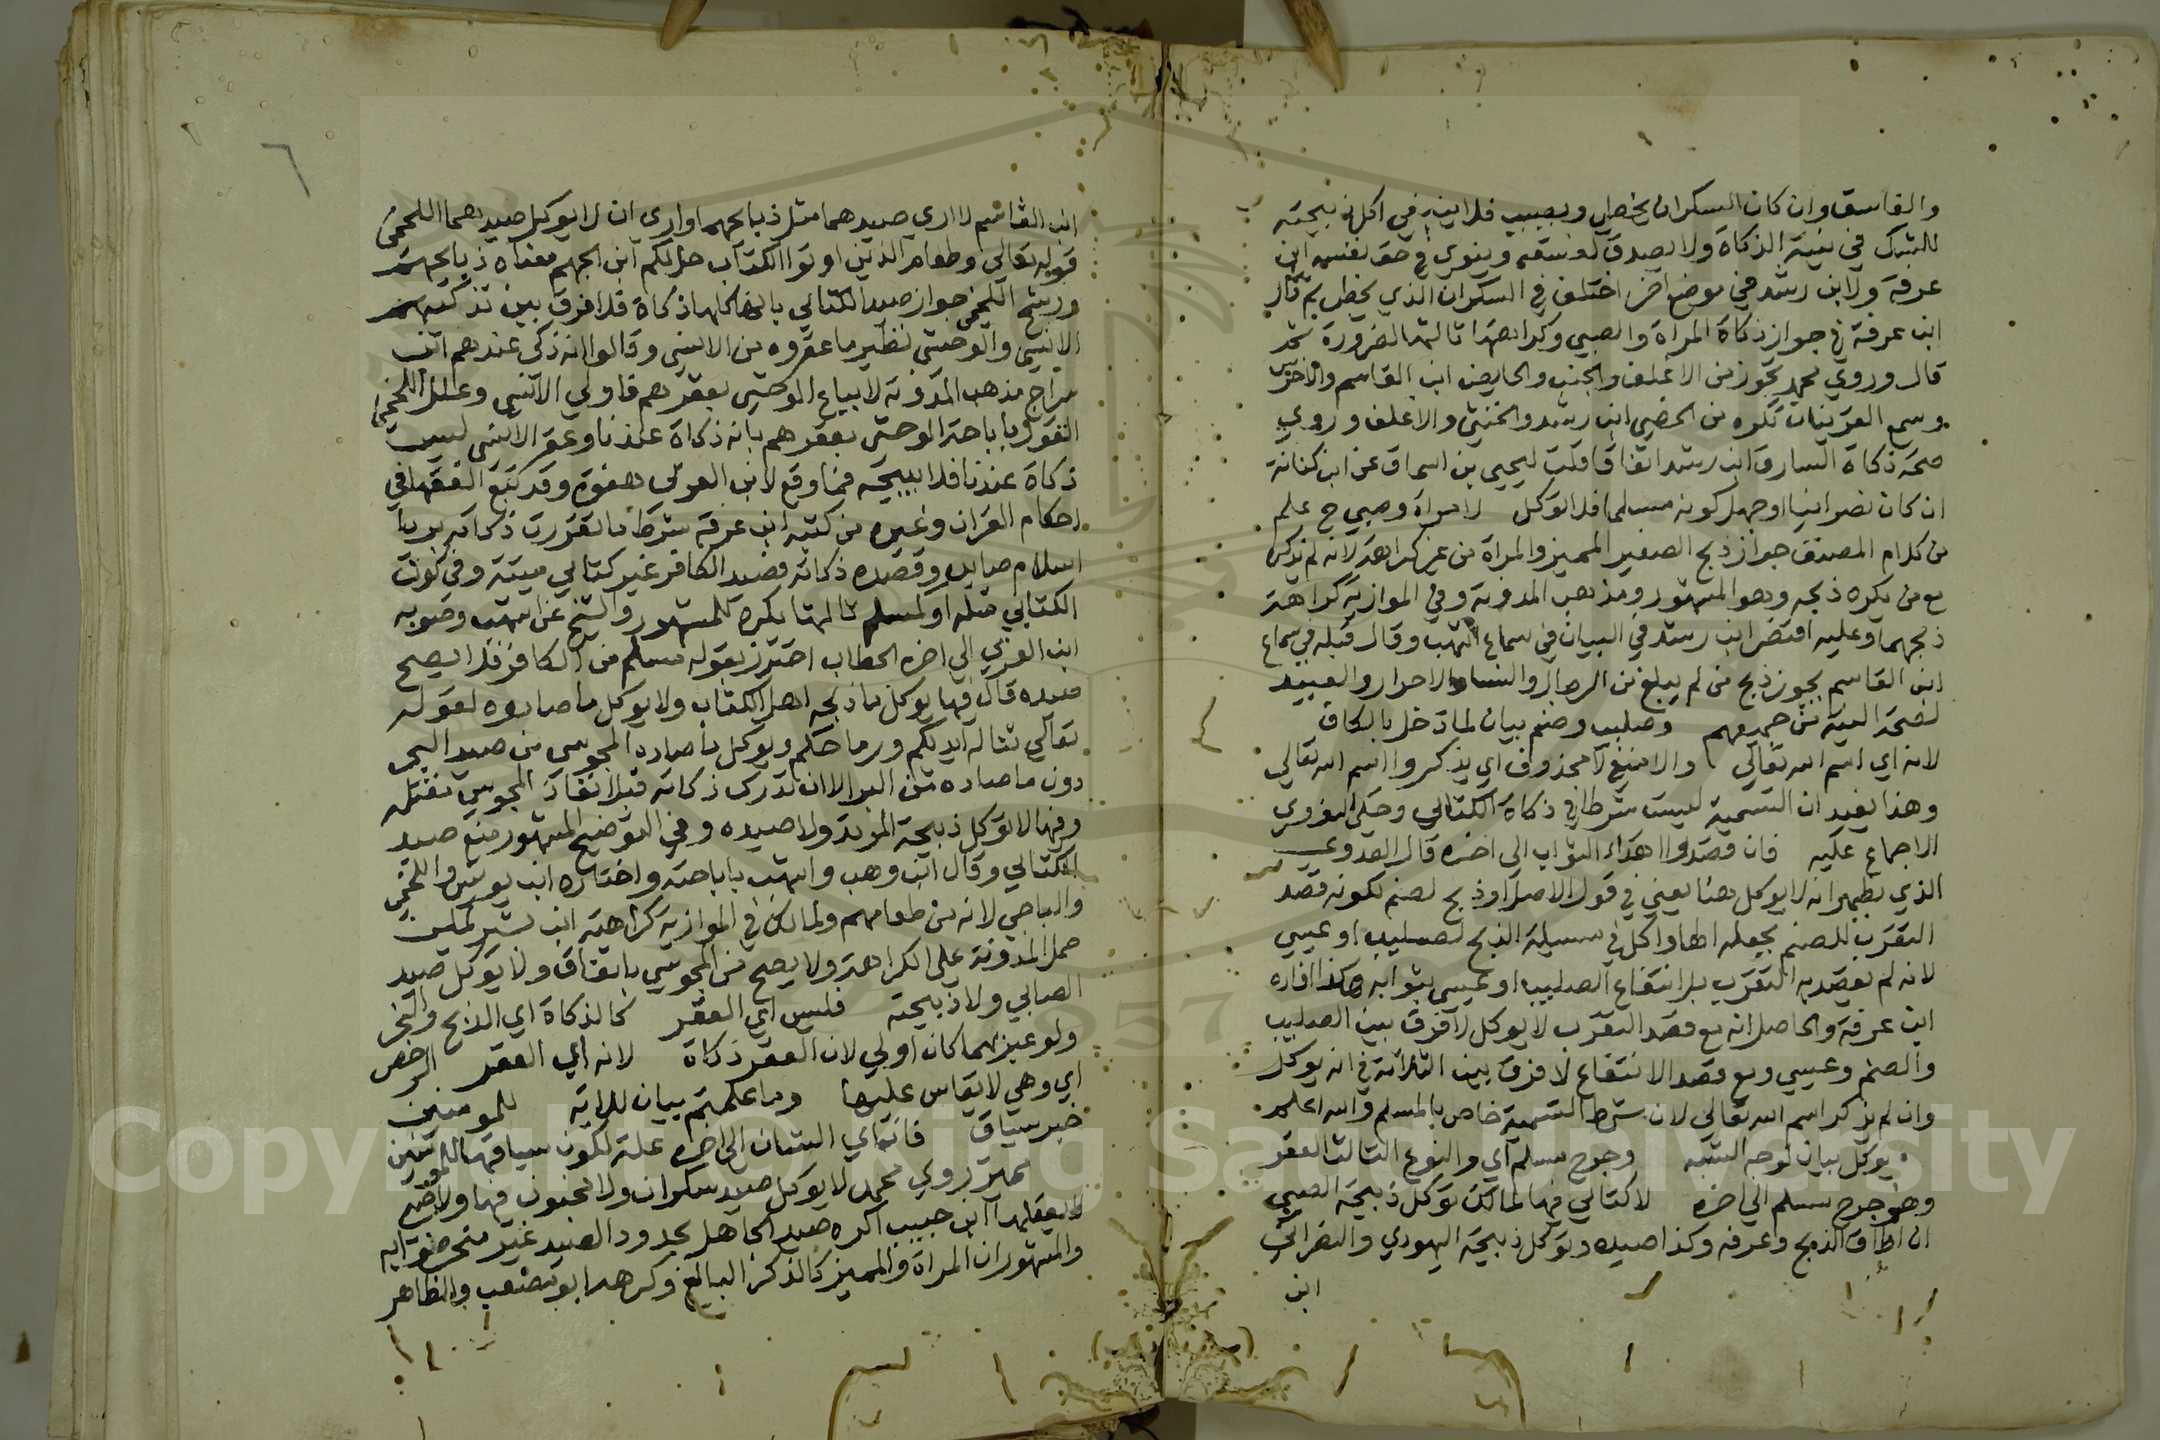 والفاسق وان كان السكران يخطي ويصيب فلا ينبغي اكل ذبيحته
للشك في نية الذكاة ولا يصدق لفسقه وينوي في حق نفسه ابن
عرفة ولابن رشد في موضع اخر اختلف في السكران الذي يخطي ثم قال
ابن عرفة في جواز ذكاة المراة والصبي وكراهتها ثالثها لضرورة ثم
قال وروي محمد تجوز من الاغلف والجنب والحايض ابن القاسم والاخرس
وسمع القرينان تكره من الخصي ابن رشد والخنثي والاغلف وروي
صحة ذكاة السارق ابن رشد اتفاقا قلت ليحيي بن اسحاق عن ابن كنانة
ان كان نصرانيا او جهل كونه مسلما فلا توكل لامراة وصبي ح علم
من كلام المصنف جواز ذبح الصغير المميز والمراة من غير كراهة لانه لم يذكر
مع من يكره ذبحه وهو المشهور ومذهب المدونة وفي الموازية كراهة
ذبحهما وعليه اقتصر ابن رشد في البيان في سماع اشهب وقال قبله في سماع
ابن القاسم يجوز ذبح من لم يبلغ من الرجال والنساء والاحرار والعبيد
لصحة النية من جميعهم وصليب وصنم بيان لما دخل بالكاف
لانه اي اسم الله تعالي والا منع لا محذوف اي يذكروا اسم الله تعالي
وهذا يفيد ان التسمية ليست شرطا في ذكاة الكتابي وحكي النووي
الاجماع عليه فان قصدوا اهداء الثواب الي اخره قال العدوي
الذي يظهر انه لا يوكل هنا يعني في قول الاصل او ذبح لصنم لكونه قصد
التقرب للصنم بجعله الها واكل في مسيلة الذبح لصليب او عيسي
لانه لم يقصد به التقرب بل انتفاع الصليب او عيسي بثوابه هكذا افاده
ابن عرفة والحاصل انه مع قصد التقرب لا يوكل لا فرق بين الصليب
والصنم وعيسي ومع قصد الانتفاع لا فرق بين الثلاثة في انه يوكل
وان لم يذكر اسم الله تعالي لان شرط التسمية خاص بالمسلم والله اعلم
يوكل بيان لوجه الشبه وجرح مسلم اي والنوع الثالث العقر
وهو جرح مسلم الي اخره لا كتابي فيها لمالك توكل ذبيحة الصبي
ان اطاق الذبح وعرفه وكذا صيده وتوكل ذبيحة اليهودي والنصراني
ابن
٦
ابن القاسم لا اري صيدهما مثل ذبايحهما واري ان لا يوكل صيدهما اللخمي
قوله تعالي وطعام الذين اوتوا الكتاب حل لكم ابن الجهم معناه ذبايحهم
ورشح اللخمي جواز صيد الكتابي بانها كلها ذكاة فلا فرق بين تذكيتهم
الانسي والوحشي نظير ما عقروه من الانسي وقالوا انه ذكي عندهم ابن
سراج مذهب المدونة لا يباع الوحشي بعقرهم فاولي الانسي وعلل اللخمي
القول باباحة الوحشي بعقرهم بانه ذكاة عندنا وعقر الانسي ليس
ذكاة عندنا فلا يبيحه فما وقع لابن العربي هفوة وقد تتبع الفقها في
احكام القران وغيره من كتبه ابن عرفة شرط ما تقررت ذكاته بريا
اسلام صايده وقصده ذكاته فصيد الكافر غير كتابي ميتة وفي كون
الكتابي مثله او لمسلم ثالثها يكره للمشهور والشيخ عن اشهب وصوبه
ابن العربي الي اخره الحطاب احترز بقوله مسلم من الكافر فلا يصح
صيده قال فيها يوكل ما ذبحه اهل الكتاب ولا يوكل ما صادوه لقوله
تعالي تناله ايديكم ورماحكم ويوكل ما صاده المجوسي من صيد البحر
دون ما صاده من البر الا ان تدرك ذكاته قبل انفاذ المجوسي مقتله
وفيها لا توكل ذبيحة المرتد ولا صيده وفي التوضيح المشهور منع صيد
الكتابي وقال ابن وهب واشهب باباحته واختاره ابن يونس واللخمي
والباجي لانه من طعامهم ولمالك في الموازية كراهته ابن بشير يمكن
حمل المدونة علي الكراهة ولا يصح من المجوسي باتفاق ولا يوكل صيد
الصابي ولا ذبيحته فليس اي العقر كالذكاة اي الذبح والنحر
ولو عبر بهما كان اولي لان العقر ذكاة لانه اي العقر الرخص
اي وهي لا يقاس عليها وما علمتم بيان للاية للمومنين
خبر سياق فان اي الشان الي اخره علة لكون سياقها للمومنين
مميز روي محمد لا يوكل صيد سكران ولا مجنون فيها ولا صبي
لا يعقلها ابن حبيب اكره صيد الجاهل بحدود الصيد غير متحر صوابه
والمشهور ان المراة والمميز كالذكر البالغ وكرهه ابو مصعب والظاهر
Copyright © King Saud University
1957